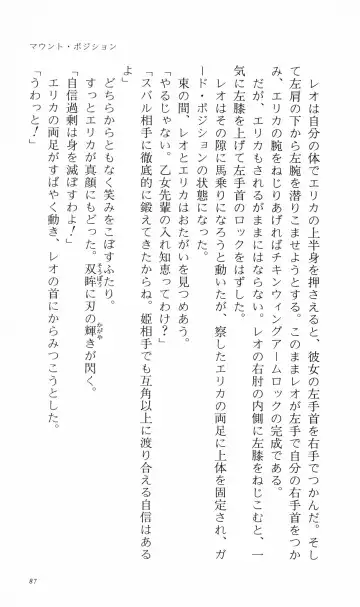 マウント・ポジション
　レオは自分の体でエリカの上半身を押さえると、彼女の左手首を右手でつかんだ。そし
て左肩の下から左腕を潜りこませようとする。このままレオが左手で自分の右手首をつか
み、エリカの腕をねじりあげればチキンウィングアームロックの完成である。
　だが、エリカもされるがままにはならない。レオの右肘の内側に左膝をねじこむと、一
気に左膝を上げて左手首のロックをはずした。
　レオはその隙に馬乗りになろうと動いたが、察したエリカの両足に上体を固定され、ガ
ード・ポジションの状態になった。
　束の間、レオとエリカはおたがいを見つめあう。
「やるじゃない。乙女先輩の入れ知恵ってわけ？」
「スバル相手に徹底的に鍛えてきたからね。姫相手でも互角以上に渡り合える自信はある
よ」
　どちらからともなく笑みをこぼすふたり。
　すっとエリカが真顔にもどった。双眸に刃の輝きが閃く。
「自信過剰は身を滅ぼすわよ！」
　エリカの両足がすばやく動き、レオの首にからみつこうとした。
「うわっと！」
87